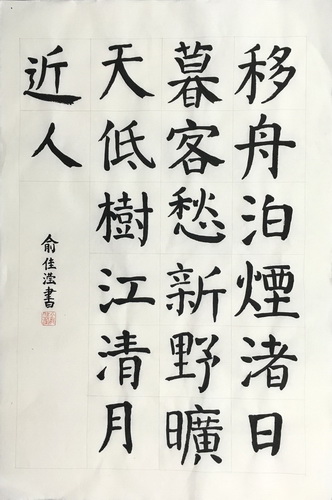 移舟泊煙渚日
暮客愁新野曠
天低樹江清月
近人
俞佳滢書